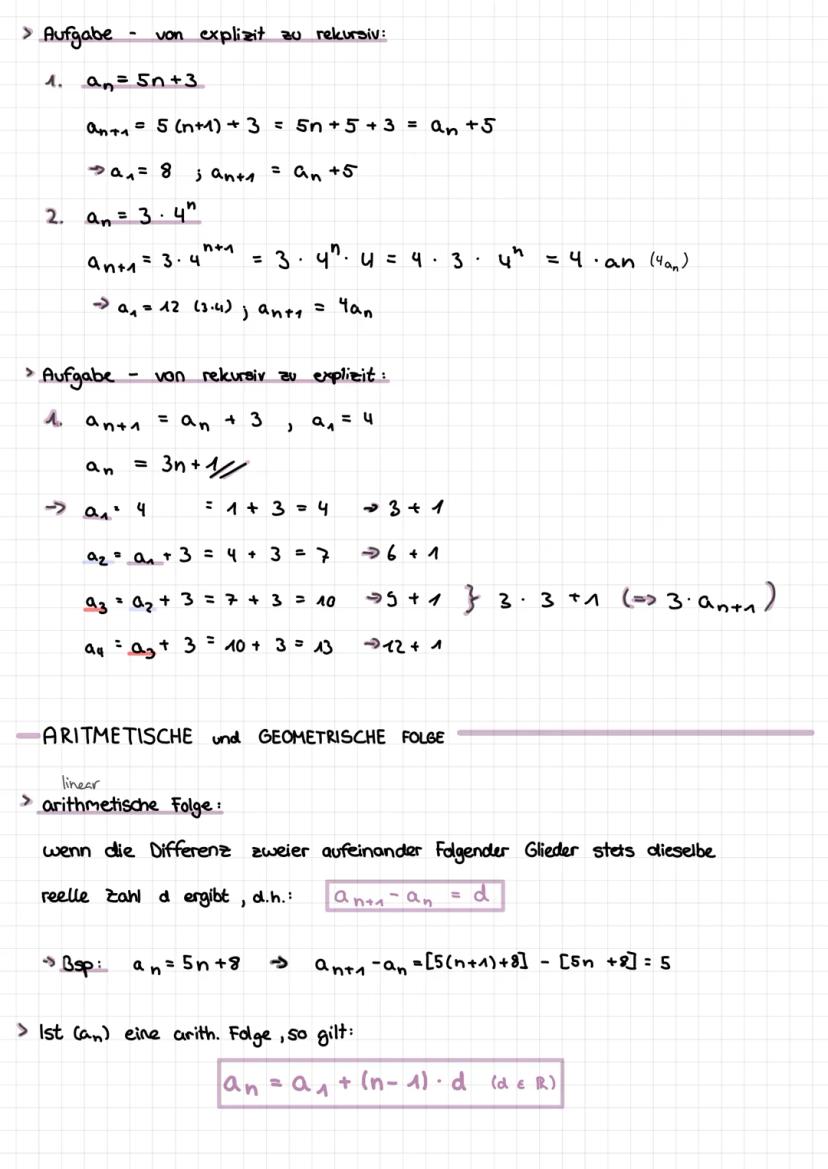 > Aufgabe - von explizit zu rekursiv:
1. aₙ = 5n + 3
aₙ₊₁ = 5 (n+1) + 3 = 5n + 5 + 3 = aₙ + 5
→ a₁ = 8 ; aₙ₊₁ = aₙ + 5
2. aₙ = 3 · 4ⁿ
aₙ₊₁ = 3 · 4ⁿ⁺¹ = 3 · 4ⁿ · 4 = 4 · 3 · 4ⁿ = 4 · an (4aₙ)
→ a₁ = 12 (3·4) ; aₙ₊₁ = 4aₙ
> Aufgabe - von rekursiv zu explizit:
1. aₙ₊₁ = aₙ + 3 , a₁ = 4
aₙ = 3n + 1 //
→ a₁ = 4 = 1 + 3 = 4 → 3 + 1
a₂ = a₁ + 3 = 4 + 3 = 7 → 6 + 1
a₃ = a₂ + 3 = 7 + 3 = 10 → 9 + 1 } 3 · 3 + 1 (=> 3 · aₙ₊₁)
a₄ = a₃ + 3 = 10 + 3 = 13 → 12 + 1
ARITMETISCHE und GEOMETRISCHE FOLGE
linear
> arithmetische Folge:
wenn die Differenz zweier aufeinander Folgender Glieder stets dieselbe
reelle Zahl d ergibt, d.h.: aₙ₊₁ - aₙ = d
→ Bsp: aₙ = 5n + 8 → aₙ₊₁ - aₙ = [5(n+1)+8] - [5n + 8] = 5
> Ist (aₙ) eine arith. Folge, so gilt:
aₙ = a₁ + (n - 1) · d (d ∈ ℝ)